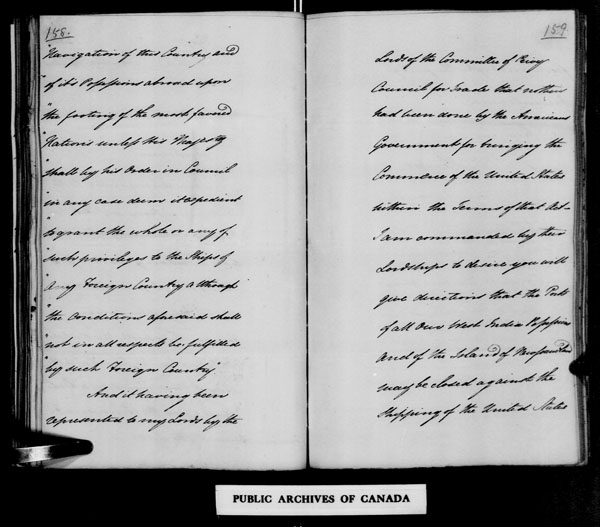 158.
"Navigation of this Country and
"of it's Possessions abroad upon
"the footing of the most favored
"Nations unless His Majesty
"shall by his Order in Council
"in any case deem it expedient
"to grant the whole or any of
"such privileges to the Ships of
"any Foreign Country although
"the conditions aforesaid shall
"not in all respects be fulfilled
"by such Foreign Country.
And it having been
represented to my Lords by the
159
Lords of the Committee of Privy
Council for Trade that nothin
had been done by the American
Government for bringing the
Commerce of the United States
within the Terms of that Act–
I am commanded by their
Lordships to desire you will
give directions that the Ports
of all Our West India Possessions
and of the Island of Newfoundland
may be closed against the
Shipping of the United States
PUBLIC ARCHIVES OF CANADA